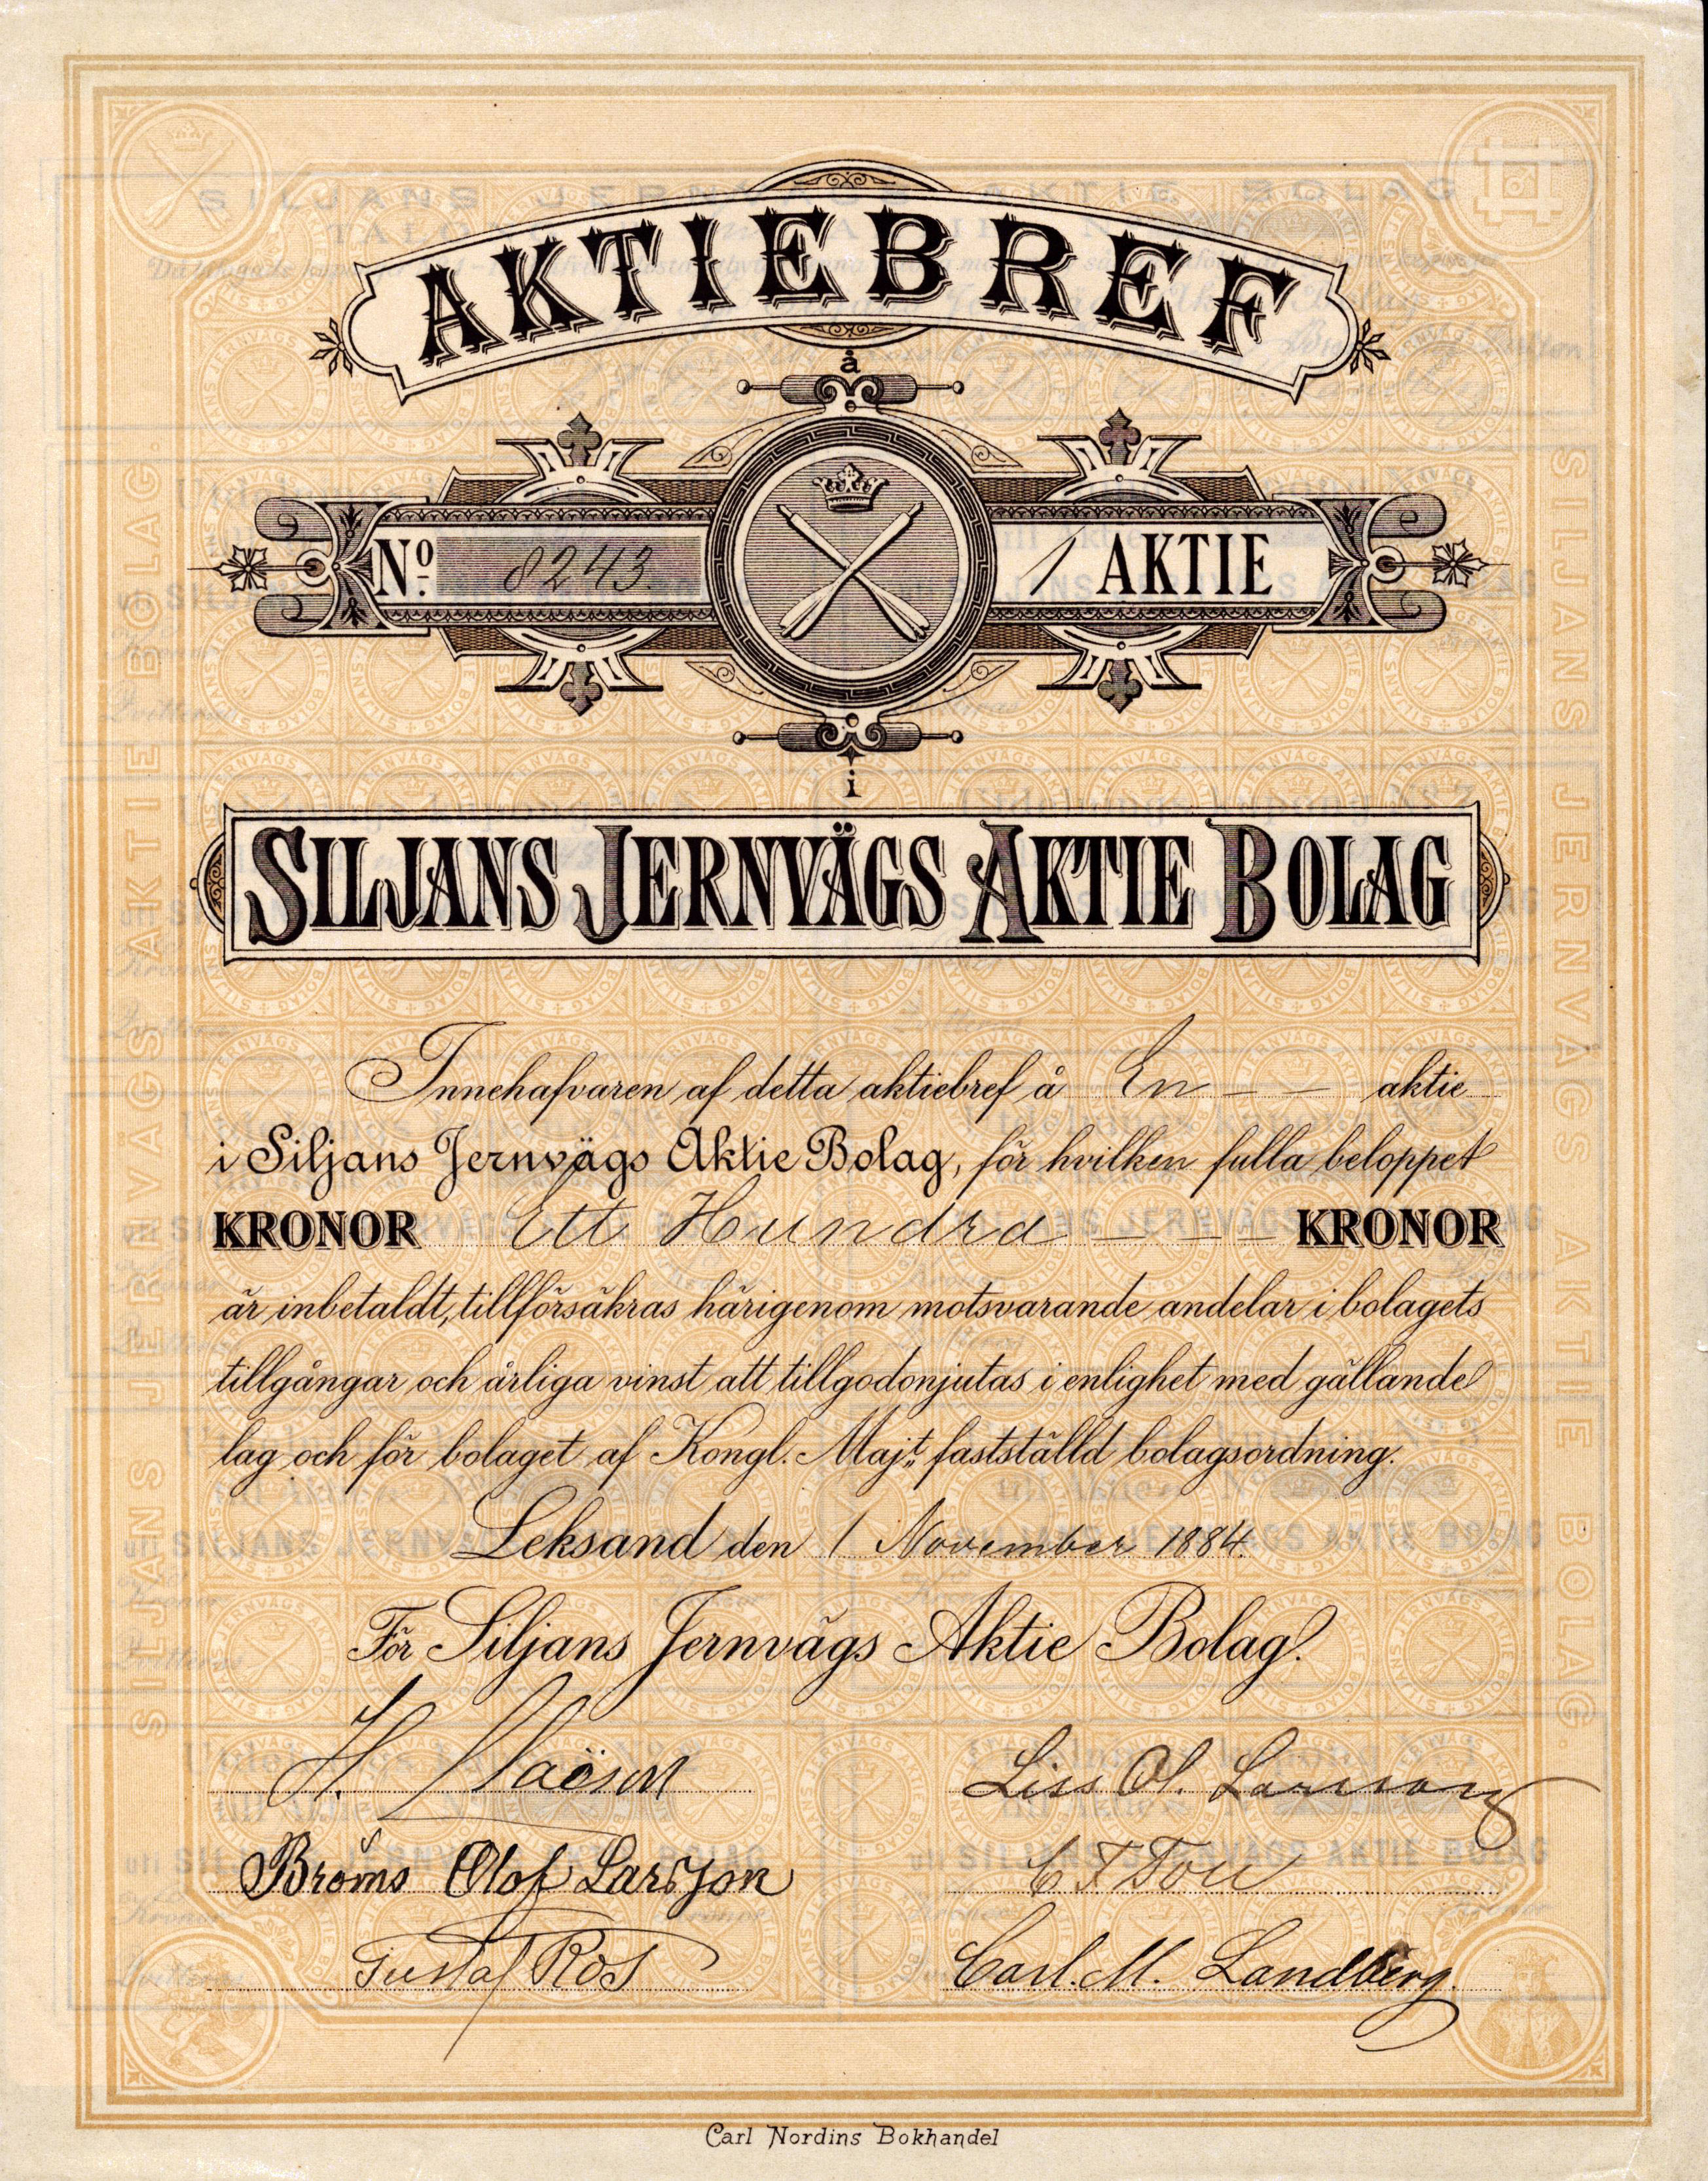 AKTIEBREF
å
Nº 8243. 1 AKTIE
i
SILJANS JERNVÄGS AKTIE BOLAG
Innehafvaren af detta aktiebref å En — — aktie
i Siljans Jernvägs Aktie Bolag, för hvilken fulla beloppet
KRONOR Ett Hundra — — — KRONOR
är inbetaldt, tillförsäkras härigenom motsvarande andelar i bolagets
tillgångar och årliga vinst att tillgodonjutas i enlighet med gällande
lag och för bolaget af Kongl. Majt. fastställd bolagsordning.
Leksand den 1 November 1884.
För Siljans Jernvägs Aktie Bolag.
H. Liss Ol. Larsson
Broms Olof Larsson
Gustaf Ros Carl. M. Landberg.
SILJANS JERNVÄGS AKTIE BOLAG.
SILJANS JERNVÄGS AKTIE BOLAG.
Carl Nordins Bokhandel